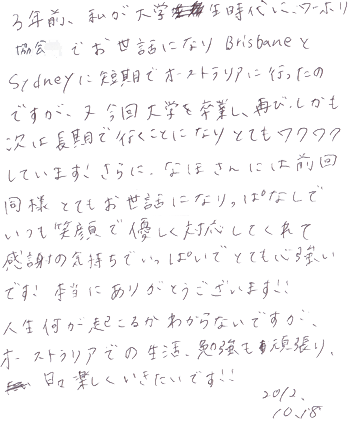 3年前、私が大学生時代に、ワーホリ
協会でお世話になり Brisbaneと
Sydneyに短期でオーストラリアに行ったの
ですが、又今回大学を卒業し、再び、しかも
次は長期で行くことになりとてもワクワク
しています！さらに、なほさんには前回
同様とてもお世話になりっぱなしで
いつも笑顔で優しく対応してくれて
感謝の気持ちでいっぱいでとても心強い
です！本当にありがとうございます!!
人生何が起こるかわからないですが、
オーストラリアでの生活、勉強も頑張り、
日々楽しくいきたいです!!
2012.
10.18